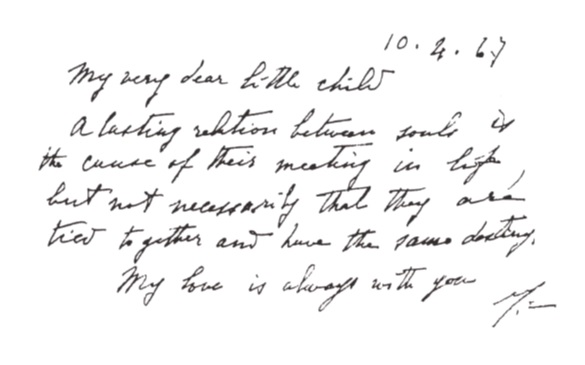 10.4.67
My very dear little child
A lasting relation between souls is
the cause of their meeting in life,
but not necessarily that they are
tied together and have the same destiny.
My love is always with you
M.–